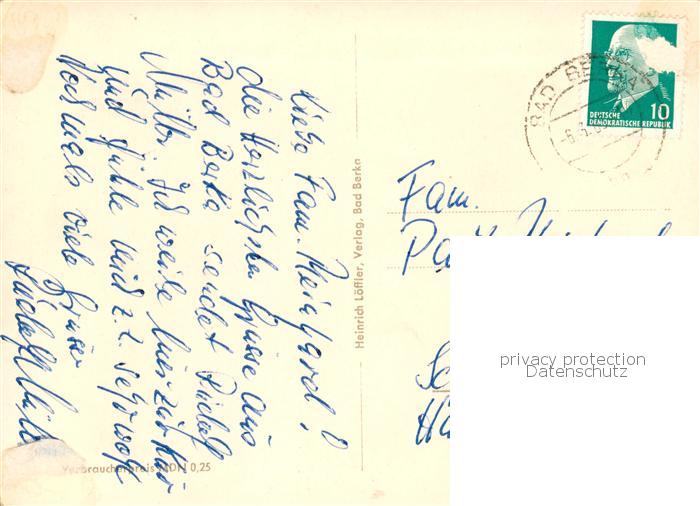 Liebe Fam. Meinhard!
die Herzlichsten Grüsse aus
Bad Berka sendet Rudolf
Müller. Ich weile hier zur Kur
und fühle mich z.Z. sehr wohl
Nochmals viele Grüsse
Rudolf Mül
Verbraucherpreis MDN 0,25
Heinrich Löffler, Verlag, Bad Berka
BAD BERKA
10
DEUTSCHE
DEMOKRATISCHE REPUBLIK
Fam.
privacy protection
Datenschutz